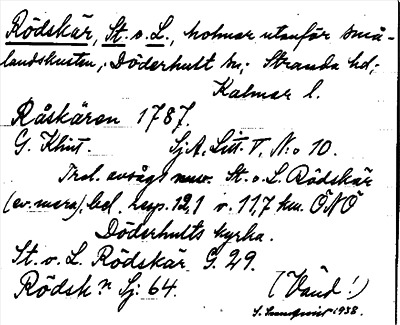 Rödskär, St. o. L., holmar utanför små-
landskusten, Döderhult sn; Stranda hd;
Kalmar l.
Råskären 1787.
G. Klint. Sj.A. Litt. T, N:o 10.
Trol. avsågs nuv. St. o. L. Rödskär
(ev. mera), bel. resp. 12,1 o. 11,7 km. ÖNÖ
Döderhults kyrka.
St. o. L. Rödskär G. 29.
Rödsk:n Sj. 64. (Vänd!)
1938.